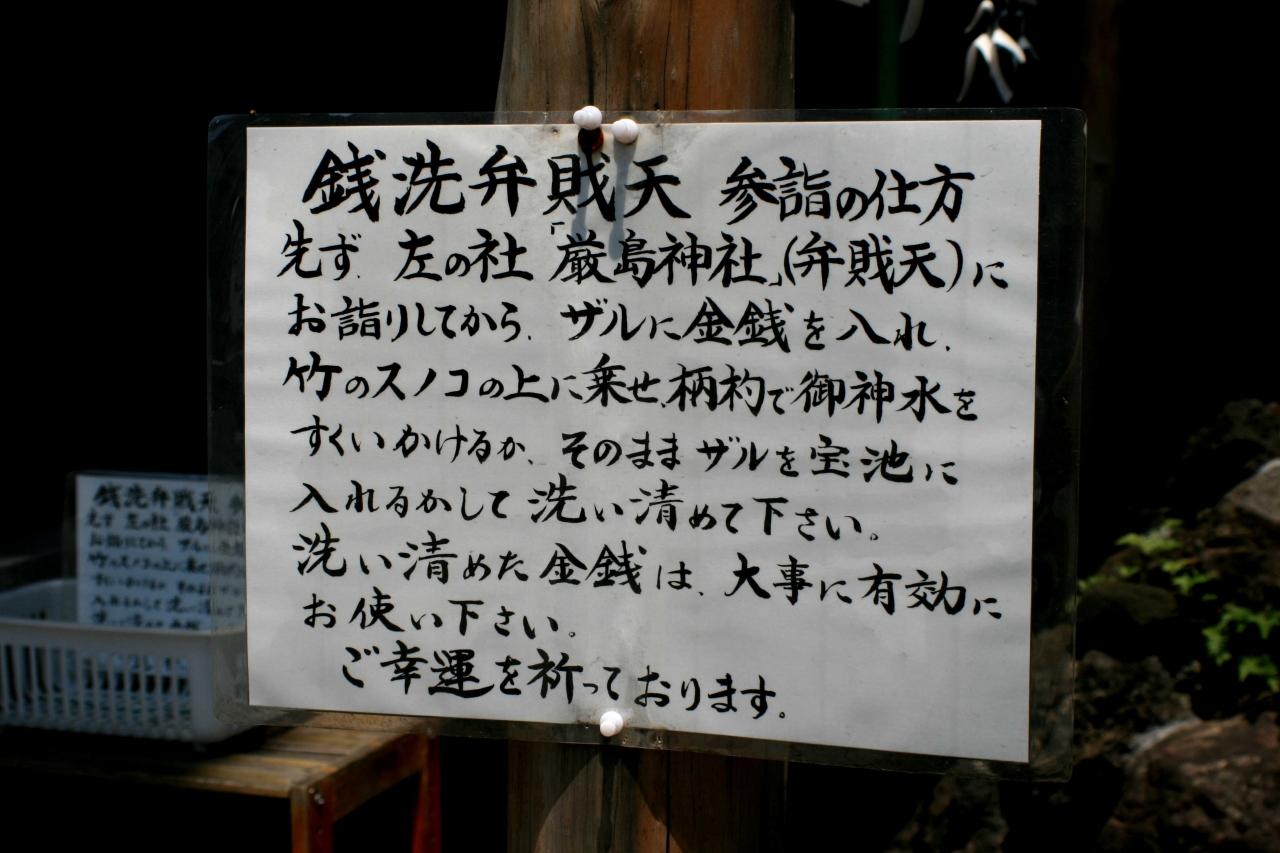 銭洗弁賎天 参詣の仕方
先ず、左の社「厳島神社」(弁賎天)に
お詣りしてから、ザルに金銭を入れ、
竹のスノコの上に乗せ、柄杓で御神水を
すくいかけるか、そのままザルを宝池に
入れるかして洗い清めて下さい。
洗い清めた金銭は、大事に有効に
お使い下さい。
ご幸運を祈っております。
銭洗弁賎天 参
先ず 左の社 厳島
お詣りしてから、ザルに
竹のスノコの上に乗せ
すくいかけるか、そのまま
入れるかして洗い